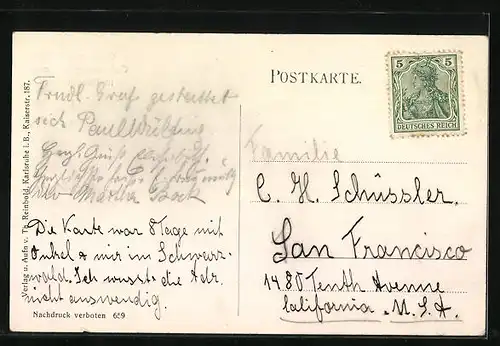 POSTKARTE.
5 5
DEUTSCHES REICH
Frndl. Gruß
sich Paul
Herzl. Gruß
Martha
Die Karte war 8 Tage mit
Onkel & mir im Schwarz-
wald. Ich wusste die Adr.
nicht auswendig.
Familie
C. H. Schüssler.
San Francisco
1480 Tenth Avenue
California. U.S.A.
Verlag u. Aufn v. Th. Reinbold, Karlsruhe i. B., Kaiserstr. 187.
Nachdruck verboten 689